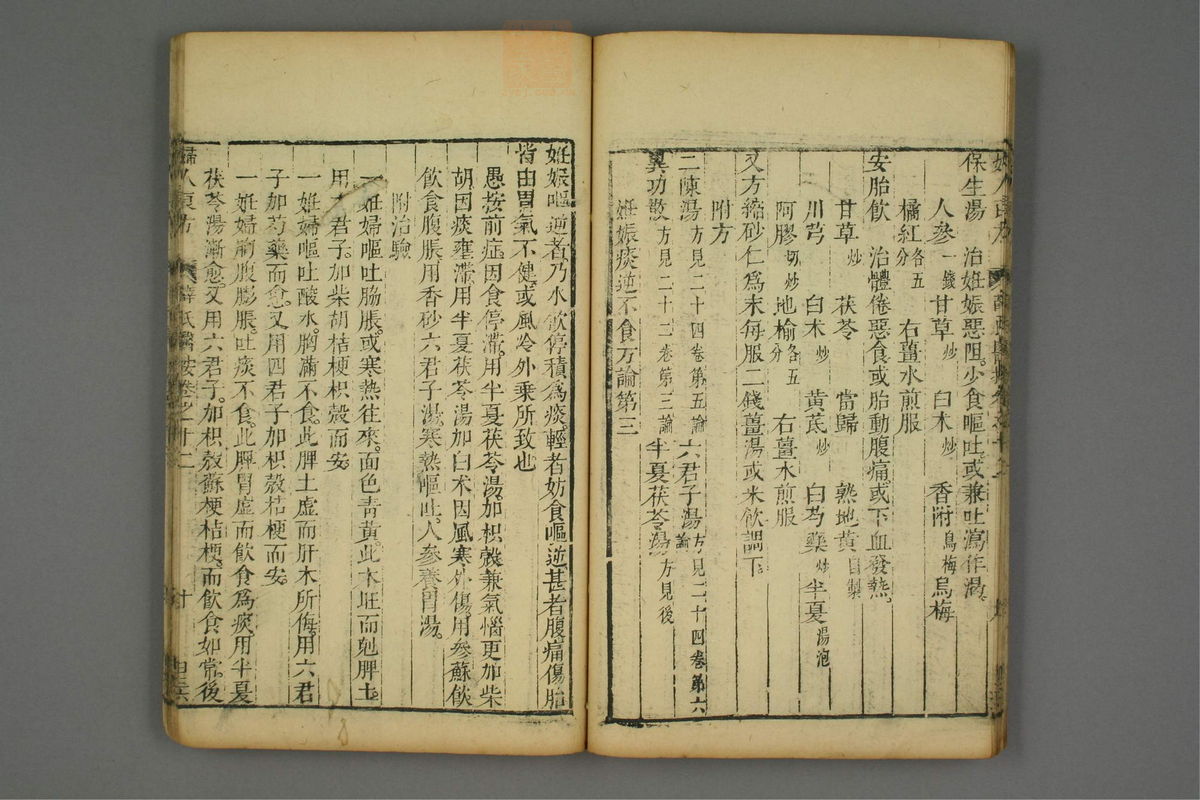 保生湯 治妊娠惡阻少食嘔吐或兼吐瀉作渴
人參一錢 甘草炒 白术炒 香附 烏梅 烏梅
橘紅各五分 右薑水煎服
安胎飲 治體倦惡食或胎動腹痛或下血發熱
甘草炒 茯苓 當歸 熟地黃自製
川芎 白术炒 黃芪炒 白芍藥炒 半夏湯泡
阿膠切炒 地榆各五分 右薑水煎服
又方縮砂仁為末每服二錢薑湯或米飲調下
附方
二陳湯方見二十四卷第五論 六君子湯方見二十四卷第六論
異功散方見二十二卷第三論 半夏茯苓湯方見後
妊娠痰逆不食方論第三
妊娠嘔逆者乃水飲停積為痰輕者妨食嘔逆甚者腹痛傷胎
皆由胃氣不健或風冷外乘所致也
愚按前症因食停滯用半夏茯苓湯加枳殼兼氣惱更加柴
胡因痰壅滯用半夏茯苓湯加白术因風寒外傷用參蘇飲
飲食腹脹用香砂六君子湯寒熱嘔吐人參養胃湯
附治驗
一妊婦嘔吐脇脹或寒熱往來面色青黃此木旺而尅脾土
用六君子加柴胡桔梗枳殼而安
一妊婦嘔吐酸水胸滿不食此脾土虛而肝木所侮用六君
子加芍藥而愈又用四君子加枳殼桔梗而安
一妊婦胸腹膨脹吐痰不食此脾胃虛而飲食為痰用半夏
茯苓湯漸愈又用六君子加枳殼蘇梗桔梗而飲食如常後
婦人良方 薛氏醫按卷之十二